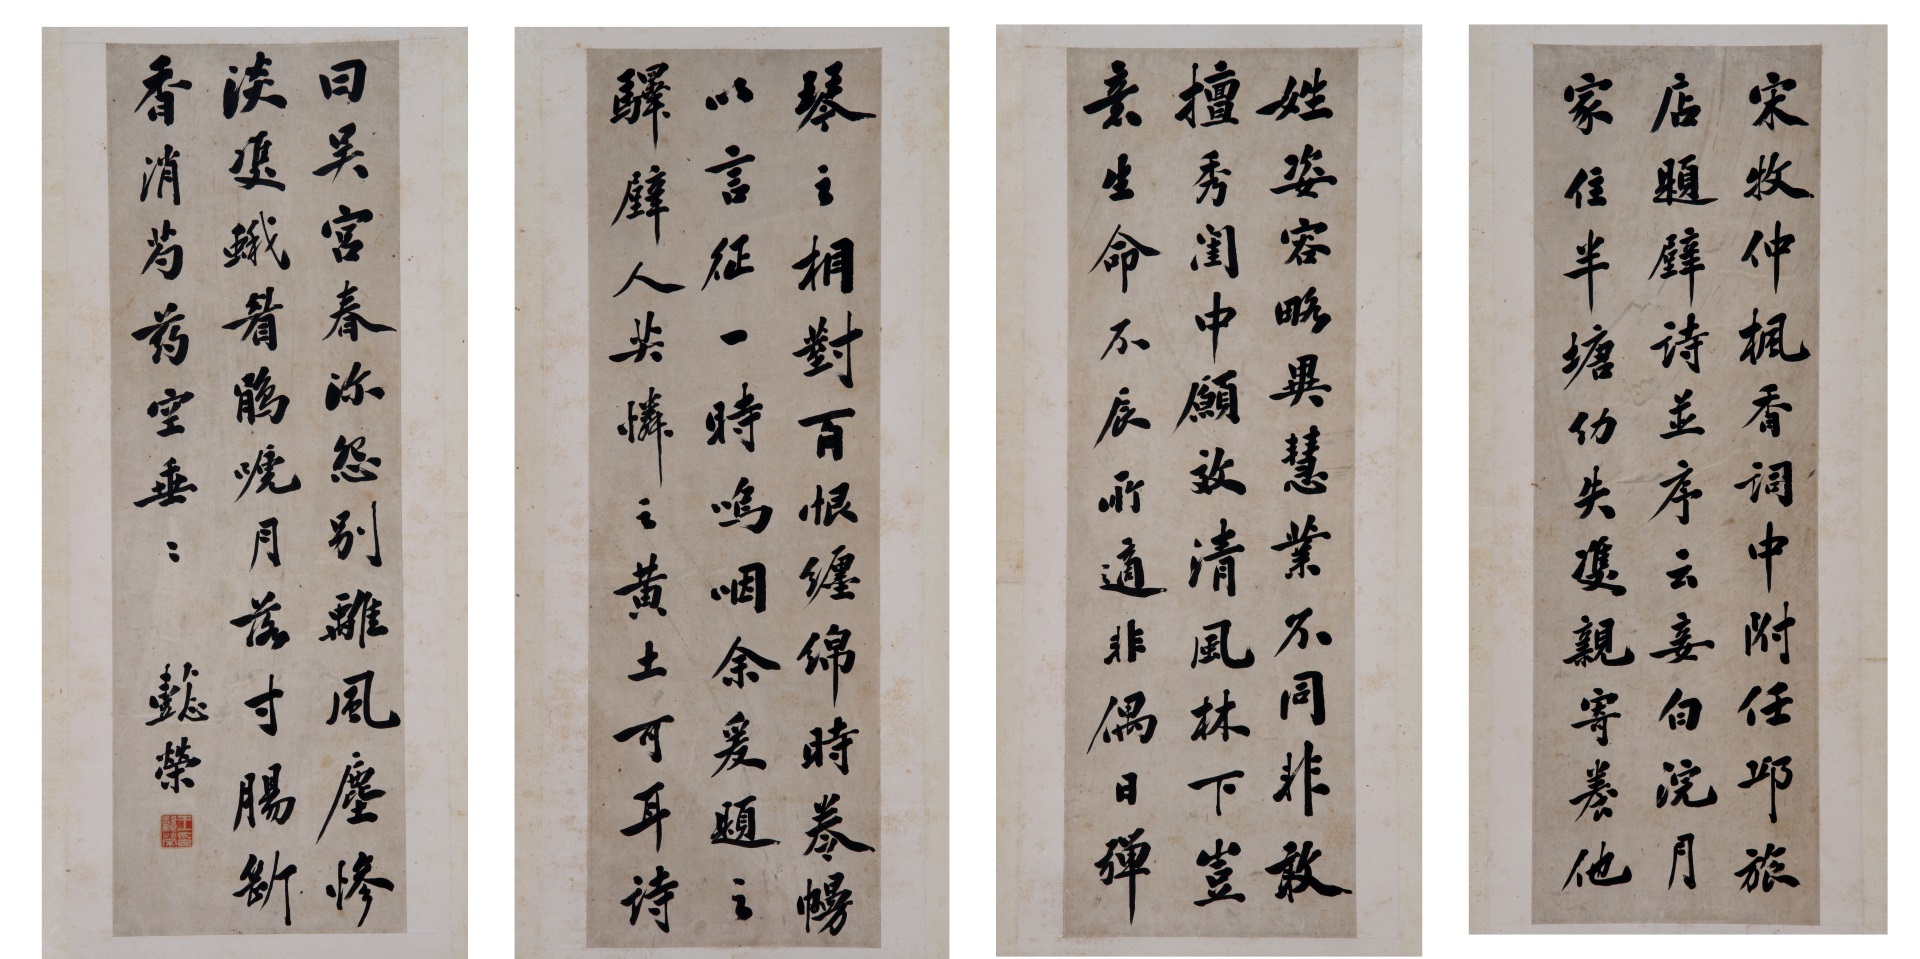 宋牧仲楓香詞中附任邱旅
店題壁詩並序云妾白浣月
家住半塘幼失雙親寄養他
姓姿容略異慧業不同非敢
擅秀閨中願效清風林下豈
意生命不辰所適非偶日彈
琴之相對百恨纏綿時搴幌
以言征一時嗚咽余爰題之
驛壁人共憐之黃土可耳詩
曰吳宮春深怨別離風塵慘
淡雙蛾眉鵑唬月落寸腸斷
香消芍药空垂〻
懿榮